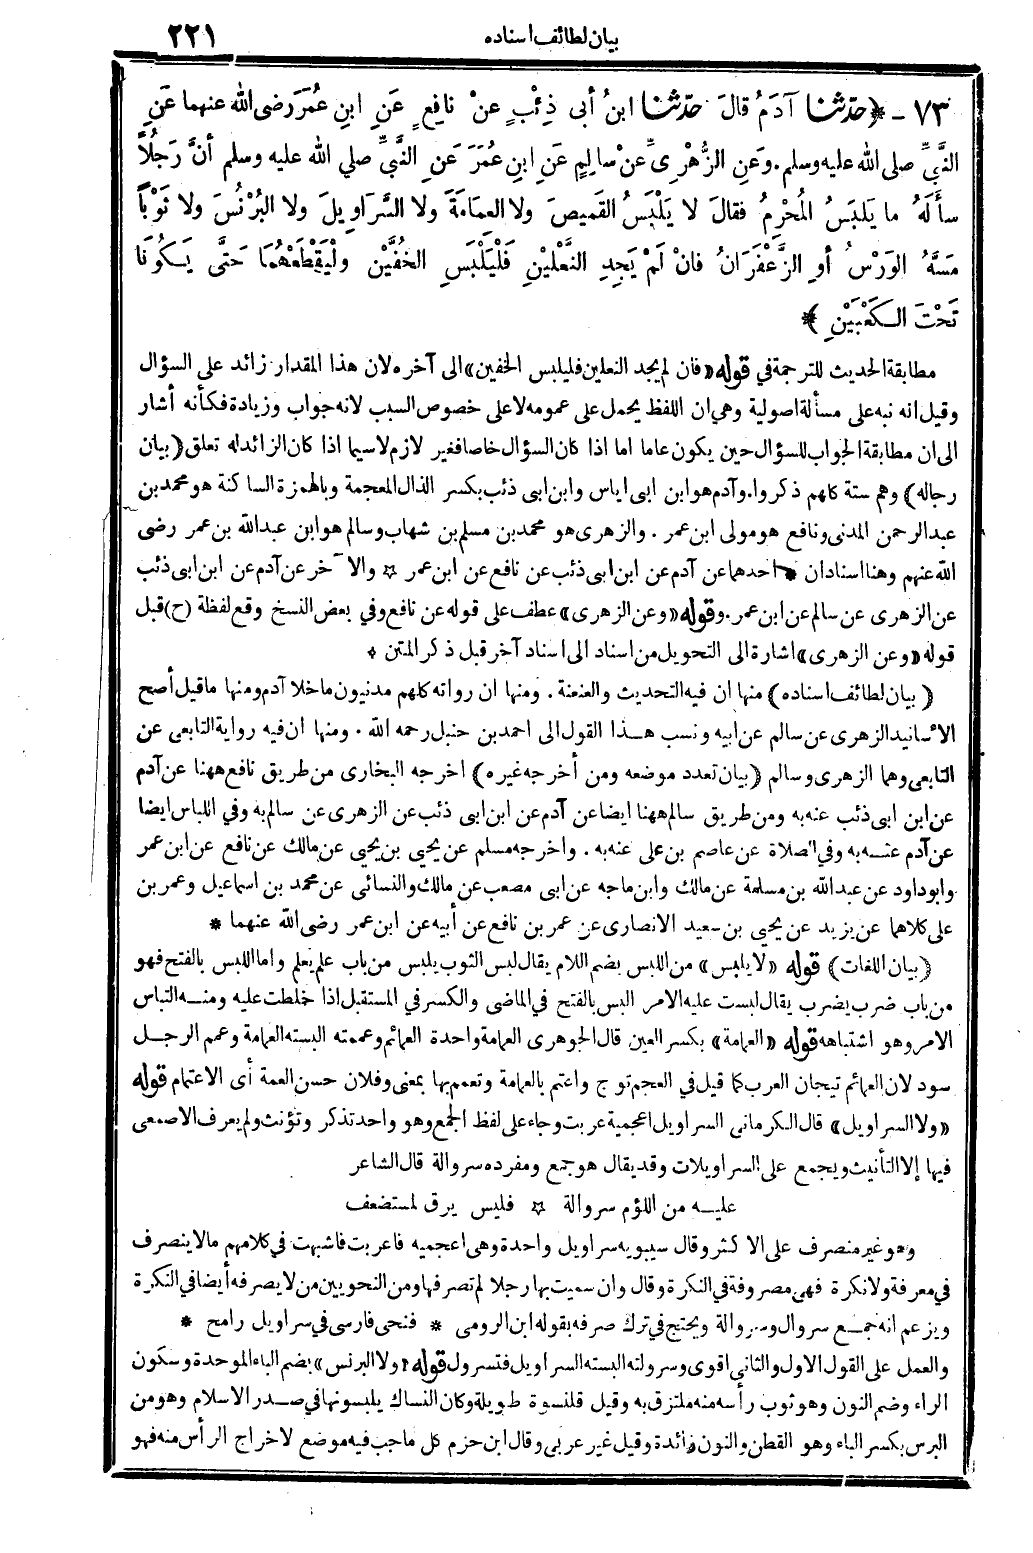 بيان لطائف اسناده ٢٢١
٧٣ - ﴿ حدّثنا آدَمُ قالَ حدّثنا ابنُ أبى ذِئْبٍ عنْ نافِعٍ عَنِ ابنِ عُمَرَ رضى الله عنهما عَنِ
النَّبيِّ صلى الله عليه وسلم . وعَنِ الزُّهْرِىِّ عنْ سالِمٍ عَنِ ابنِ عُمَرَ عَنِ النَّبيِّ صلي الله عليه وسلم أنَّ رَجُلًا
سألَهُ ما يَلبَسُ المُحْرِمُ فقالَ لا يَلْبَسُ القَمِيصَ ولا العِمَامَةَ ولا السَّرَاوِيلَ ولا البُرْنُسَ ولا ثَوْباً
مَسَّهُ الوَرْسُ أوِ الزَّعْفَرَانُ فانْ لَمْ يَجِدِ النَّعْلَيْنِ فَلْيَلْبَسِ الخُفَّيْنِ ولْيَقْطَعْهُمَا حَتَّى يَكُونَا
تَحْتَ الكَعْبَيْنِ ﴾ *
مطابقة الحديث للترجمة في قوله «فان لم يجد النعلين فليلبس الخفين» الى آخره لان هذا المقدار زائد على السؤال
وقيل انه نبه على مسألة اصولية وهى ان اللفظ يحمل على عمومه لا على خصوص السبب لانه جواب وزيادة فكأنه أشار
الى ان مطابقة الجواب للسؤال حين يكون عاما اما اذا كان السؤال خاصا فغير لازم لاسيما اذا كان الزائد له تعلق (بيان
رجاله) وهم ستة كلهم ذكروا. وآدم هو ابن ابى اياس وابن ابى ذئب بكسر الذال المعجمة وبالهمزة الساكنة هو محمد بن
عبد الرحمن المدنى ونافع هو مولى ابن عمر . والزهرى هو محمد بن مسلم بن شهاب وسالم هو ابن عبد الله بن عمر رضى
الله عنهم وهنا اسنادان * احدهما عن آدم عن ابن ابى ذئب عن نافع عن ابن عمر ☆ والآخر عن آدم عن ابن ابى ذئب
عن الزهرى عن سالم عن ابن عمر. وقوله «وعن الزهرى» عطف على قوله عن نافع وفي بعض النسخ وقع لفظة (ح) قبل
قوله «وعن الزهرى» اشارة الى التحويل من اسناد الى اسناد آخر قبل ذكر المتن *
(بيان لطائف اسناده) منها ان فيه التحديث والعنعنة . ومنها ان رواته كلهم مدنيون ماخلا آدم ومنها ماقيل أصح
الاسانيد الزهرى عن سالم عن ابيه ونسب هذا القول الى احمد بن حنبل رحمه الله . ومنها ان فيه رواية التابعى عن
التابعى وهما الزهرى وسالم (بيان تعدد موضعه ومن أخرجه غيره) اخرجه البخارى من طريق نافع ههنا عن آدم
عن ابن ابى ذئب عنه به ومن طريق سالم ههنا ايضا عن آدم عن ابن ابى ذئب عن الزهرى عن سالم به وفي اللباس ايضا
عن آدم عنه به وفي الصلاة عن عاصم بن على عنه به . واخرجه مسلم عن يحيى بن يحيى عن مالك عن نافع عن ابن عمر
وابو داود عن عبد الله بن مسلمة عن مالك وابن ماجه عن ابى مصعب عن مالك والنسائى عن محمد بن اسماعيل وعمر بن
على كلاهما عن يزيد عن يحيى بن سعيد الانصارى عن عمر بن نافع عن أبيه عن ابن عمر رضى الله عنهما *
(بيان اللغات) قوله «لا يلبس» من اللبس بضم اللام يقال لبس الثوب يلبس من باب علم يعلم واما اللبس بالفتح فهو
من باب ضرب يضرب يقال لبست عليه الامر البس بالفتح في الماضى والكسر في المستقبل اذا خلطت عليه ومنه التباس
الامر وهو اشتباهه قوله «العمامة» بكسر العين قال الجوهرى العمامة واحدة العمائم وعممته البسته العمامة وعمم الرجل
سود لان العمائم تيجان العرب كما قيل في العجم توج واعتم بالعمامة وتعمم بها بمعنى وفلان حسن العمة أى الاعتمام قوله
«ولا السراويل» قال الكرمانى السراويل اعجمية عربت وجاء على لفظ الجمع وهو واحد تذكر وتؤنث ولم يعرف الاصمعى
فيها إلا التأنيث ويجمع على السراويلات وقد يقال هو جمع ومفرده سروالة قال الشاعر
عليه من اللؤم سروالة ☆ فليس يرق لمستضعف
وهو غير منصرف على الاكثر وقال سيبويه سراويل واحدة وهى اعجميه فاعربت فاشبهت في كلامهم مالا ينصرف
في معرفة ولا نكرة فهى مصروفة في النكرة وقال وان سميت بها رجلا لم تصرفها ومن النحويين من لا يصرفه أيضا في النكرة
ويزعم انه جمع سروال وسروالة ويحتج في ترك صرفه بقوله ابن الرومى * فتحى فارسى في سراويل رامح *
والعمل على القول الاول والثانى اقوى وسرولته البسته السراويل فتسرول قوله «ولا البرنس» بضم الباء الموحدة وسكون
الراء وضم النون وهو ثوب رأسه منه ملتزق به وقيل قلنسوة طويلة وكان النساك يلبسونها في صدر الاسلام وهو من
البرس بكسر الباء وهو القطن والنون زائدة وقيل غير عربى وقال ابن حزم كل ماجب فيه موضع لاخراج الرأس منه فهو